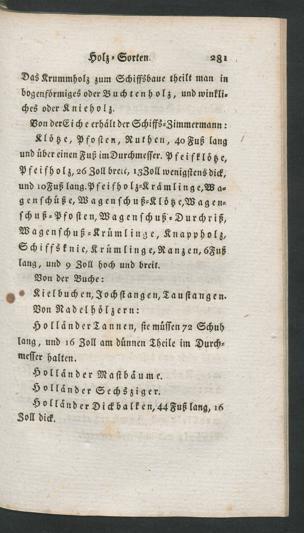 Holz-Sorten 281
Das Krummholz zum Schiffsbaue theilt man in
bogenförmiges oder Buchtenholz, und winkli-
ches oder Knieholz.
Von der Eiche erhält der Schiffs-Zimmermann:
Klötze, Pfosten, Ruthen, 40 Fuß lang
und über einen Fuß im Durchmesser. Pfeifklötze,
Pfeifholz, 26 Zoll breit, 13 Zoll wenigstens dick,
und 10 Fuß lang. Pfeifholz-Krämlinge, Wa-
genschüße, Wagenschuß-Klötze, Wagen-
schuß-Pfosten, Wagenschuß-Durchriß,
Wagenschuß-Krümlinge, Knappholz,
Schiffsknie, Krümlinge, Ranzen, 6 Fuß
lang, und 9 Zoll hoch und breit.
Von der Buche:
Kielbuchen, Jochstangen, Taustangen.
Von Nadelhölzern:
Holländer Tannen, sie müssen 72 Schuh
lang, und 16 Zoll am dünnen Theile im Durch-
messer halten.
Holländer Mastbäume.
Holländer Sechsziger.
Holländer Dickbalken, 44 Fuß lang, 16
Zoll dick.